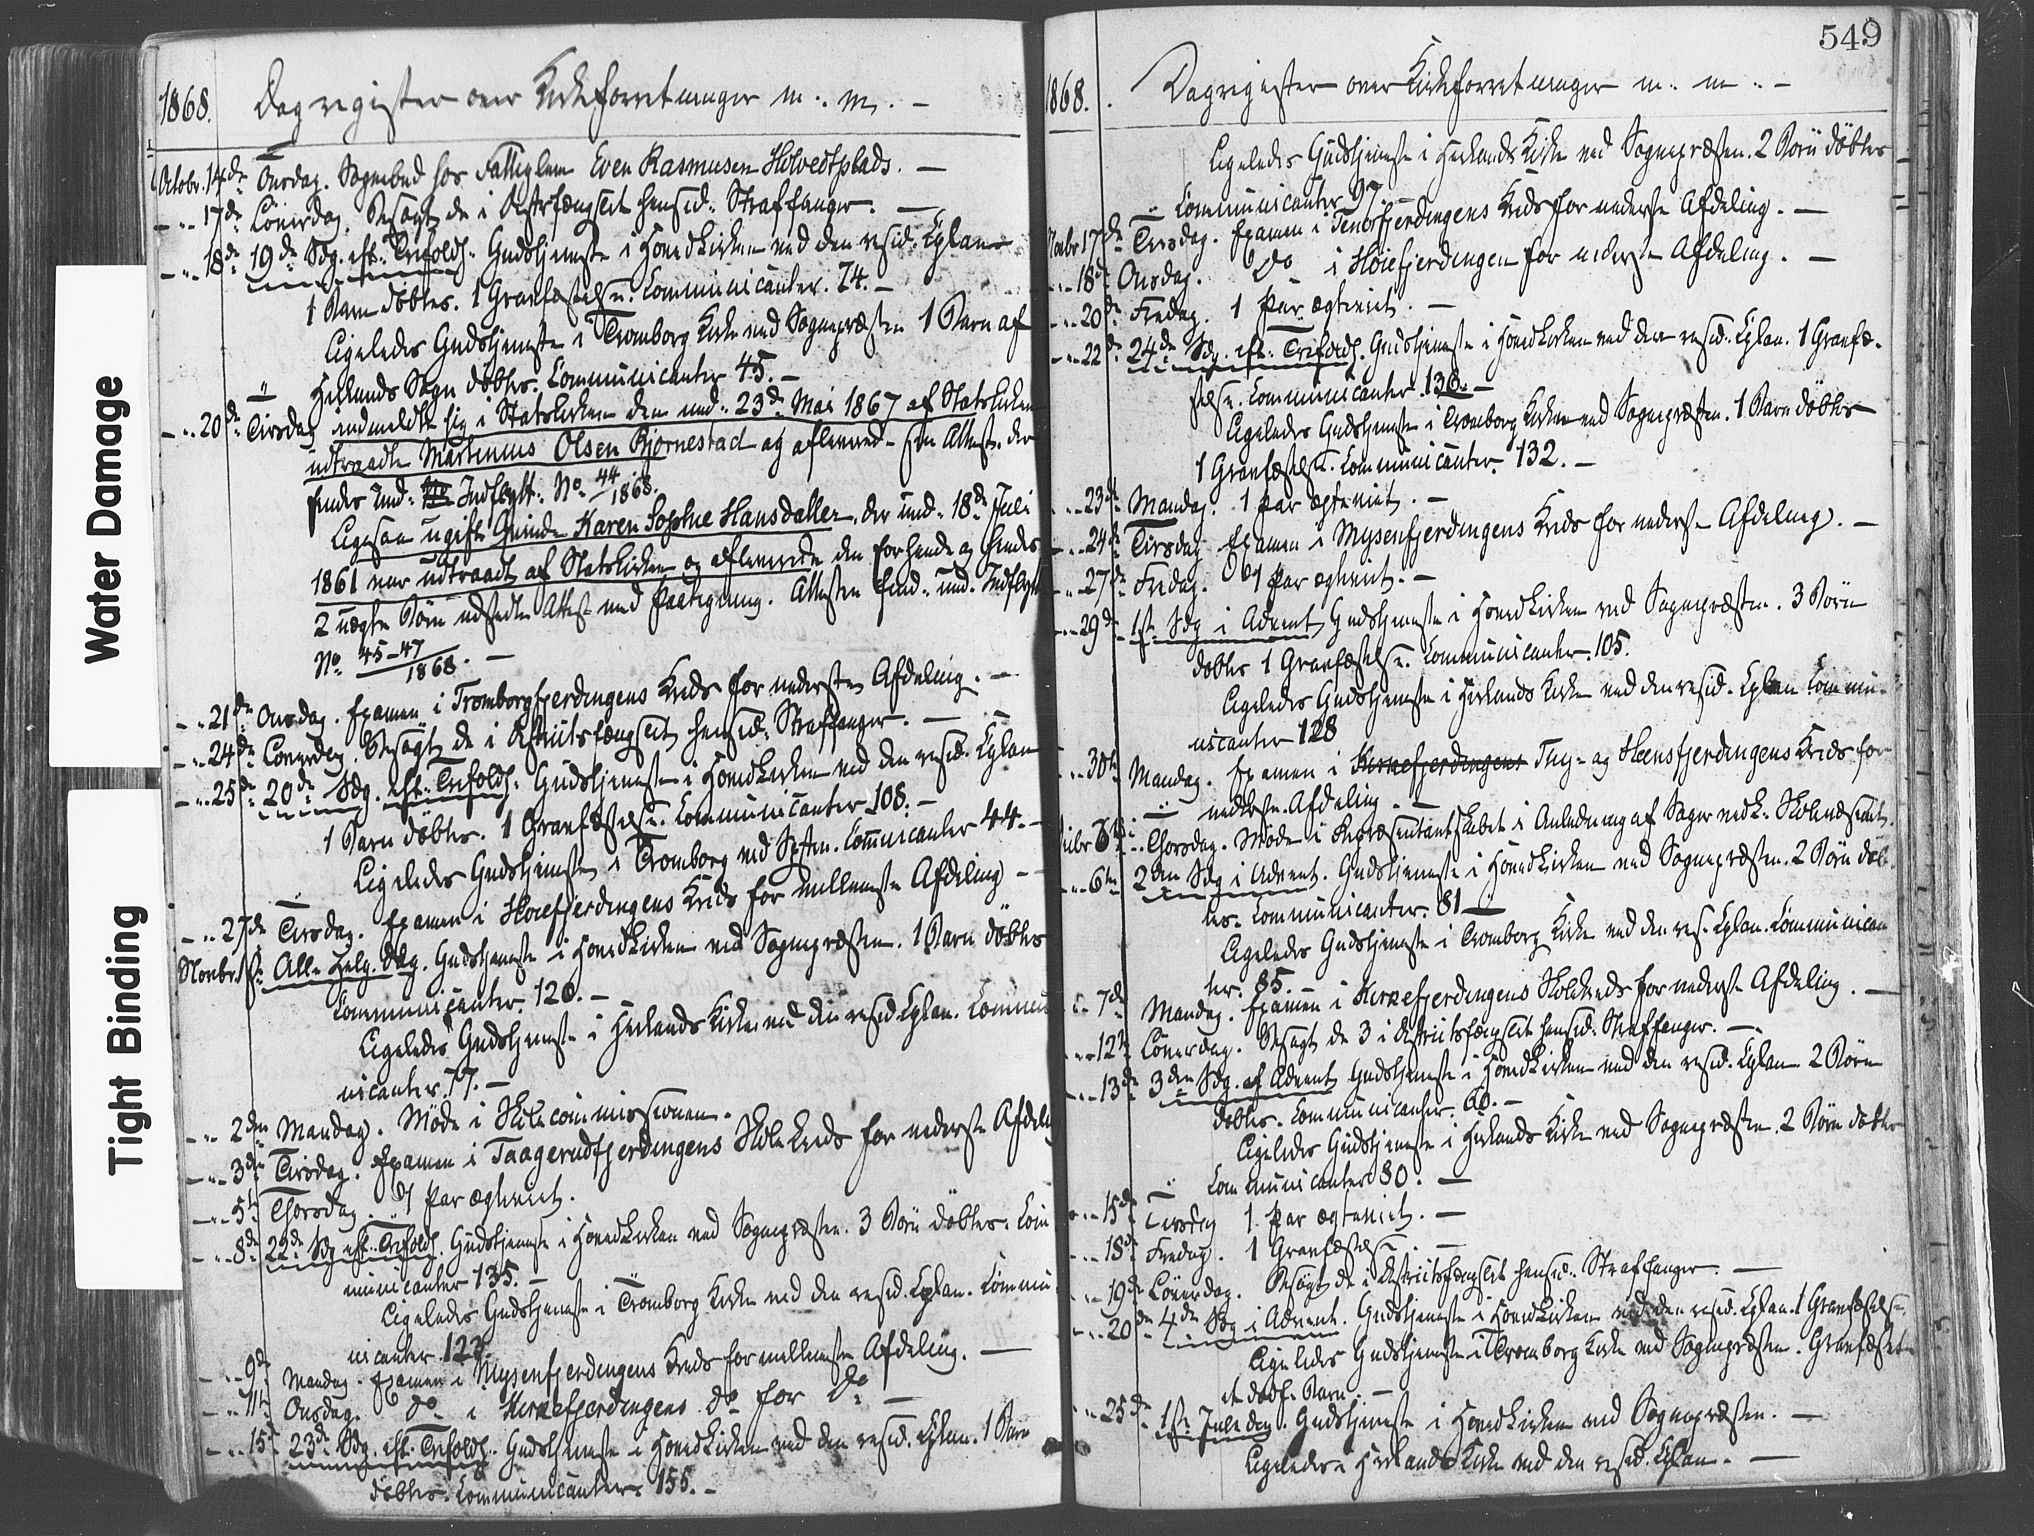 Water Damage
Tight Binding
1868. Dagregister over Kirkeforretninger m. m. –
Octobr. 14de Onsdag. Sognebud hos Fattiglem Even Rasmusen Holvedtplads. –
– „ 17de Löverdag. Besøgt de i Distrfængslet hensid. Straffanger. –
– „ 18de 19de Sdg. eft. Trefoldh. Gudstjeneste i Hovedkirken ved den resid. Cplan
1 Barn döbtes. 1 Gravfæstelse. Communicanter. 74. –
Ligeledes Gudstjeneste i Tromborg Kirke ved Sognepræsten 1 Barn af
Herlands Sogn döbtes. Communicanter 45. –
– „ 20de Tirsdag indmeldte sig i Statskirken den und. 23de Mai 1867 af Statskirken
udtraadte Martinius Olsen Bjørnestad og afleverede sin Attest der
findes und. Indflytt. No. 44/1868.
Ligesaa ugift Qvinde Karen Sophie Hansdatter, der und. 18de Juli
1861 var udtraadt af Statskirken og afleverede den for hende og hendes
2 uægte Börn udstedte Attest med Paategning. Attesten find. und. Indflytt
No. 45–47/1868. –
– „ 21de Onsdag. Examen i Tromborgfjerdingens Kreds for nederste Afdeling. –
– „ 24de Löverdag. Besøgt de i Distriktsfængslet hensid. Straffanger. –
– „ 25de 20de Sdg. eft. Trefoldh. Gudstjeneste i Hovedkirken ved den resid. Cplan
1 Barn döbtes. 1 Gravfæstelse. Communicanter 108. –
Ligeledes Gudstjeneste i Tromborg ved Spsten. Communicanter 44. –
– „ 27de Tirsdag. Examen i Høiefjerdingens Kreds for mellemste Afdeling –
Novbr. 1ste Alle Helg. Dag. Gudstjeneste i Hovedkirken ved Sognepræsten. 1 Barn döbtes
Communicanter. 120. –
Ligeledes Gudstjeneste i Herlands Kirke ved den resid Cplan. Commu
nicanter. 77. –
– „ 2den Mandag. Möde i Skolecommissionen.
– „ 3die Tirsdag. Examen i Taagerudfjerdingens Skolekreds for nederste Afdeling
– „ 5te Thorsdag. 1 Par ægteviet.
– „ 8de 22de Sdg eft. Trefoldh. Gudstjeneste i Hovedkirken ved Sognepræsten. 3 Börn döbtes. Com
municanter 135. –
Ligeledes Gudstjeneste i Tromborg Kirke ved den resid. Cplan. Commu
nicanter. 123.
– „ 9de Mandag. Examen i Mysenfjerdingens Kreds for mellemste Afdeling. –
– „ 11te Onsdag. do i Kirkefjerdingens do for do –
– „ 15de 23de Sdg. eft. Trefoldh. Gudstjeneste i Hovedkirken ved den resid. Cplan. 1 Barn
döbtes. Communicanter. 155. –
549
1868. Dagregister over Kirkeforretninger m. m. –
Ligeledes Gudstjeneste i Herlands Kirke ved Sognepræsten. 2 Börn döbtes
Communicanter 97. –
Novbr 17de Tirsdag. Examen i Tenorfjerdingens Kreds for nederste Afdeling. –
– „ 18de Onsdag. Do i Høiefjerdingen for nederste Afdeling. –
– „ 20de Fredag. 1 Par ægteviet. –
– „ 22de 24de Sdg. eft. Trefoldh. Gudstjeneste i Hovedkirken ved den resid. Cplan. 1 Gravfæ-
stelse. Communicanter 136. –
Ligeledes Gudstjeneste i Tromborg Kirke ved Sognepræsten. 1 Barn döbtes
1 Gravfæstelse. Communicanter. 132. –
– „ 23de Mandag. 1 Par ægteviet. –
– „ 24de Tirsdag Examen i Mysenfjerdingens Kreds for nederste Afdeling. –
– „ 27de Fredag. 1 Par ægteviet. –
– „ 29de 1ste Sdg i Advent Gudstjeneste i Hovedkirken ved Sognepræsten. 3 Börn
döbtes 1 Gravfæstelse. Communicanter. 105.
Ligeledes Gudstjeneste i Herlands Kirke ved den resid. Cplan Commu-
nicanter 128
– „ 30te Mandag. Examen i Kirkefjerdingens Thy- og Heensfjerdingens Kreds for
nederste Afdeling. –
Thorsdag. Möde i Repræsentantskabet i Anledning af Sager vedk. Skolevæsenet.
– „ 6te 2den Sdg i Advent. Gudstjeneste i Hovedkirken ved Sognepræsten. 2 Börn döb-
tes. Communicanter. 81 –
Ligeledes Gudstjeneste i Tromborg Kirke ved den res. Cplan. Communican
ter. 85.
– „ 7de Mandag. Examen i Kirkefjerdingens Skolekreds for nederste Afdeling. –
– „ 12te Löverdag. Besøgt de 3 i Distriktsfængslet hensid. Straffanger. –
– „ 13de 3die Sdg. af Advent Gudstjeneste i Hovedkirken ved den resid. Cplan 2 Börn
döbtes. Communicanter. 60. –
Ligeledes Gudstjeneste i Herlands Kirke ved Sognepræsten. 2 Börn döbtes
Communicanter 80. –
– „ 15de Tirsdag 1 Par ægteviet. –
– „ 18de Fredag. 1 Gravfæstelse –
– „ 19de Löverdag. Besøgt de i Distriktsfængslet hensid. Straffanger. –
– „ 20de 4de Sdg i Advent. Gudstjeneste i Hovedkirken ved den resid. Cplan. 1 Gravfæstelse.
Ligeledes Gudstjeneste i Tromborg Kirke ved Sognepræsten. Gravfæstet
et dödf. Barn. –
– „ 25de 1ste Juledag. Gudstjeneste i Hovedkirken ved Sognepræsten. –
Ligeledes i Herlands Kirke ved den resid. Cplan. –